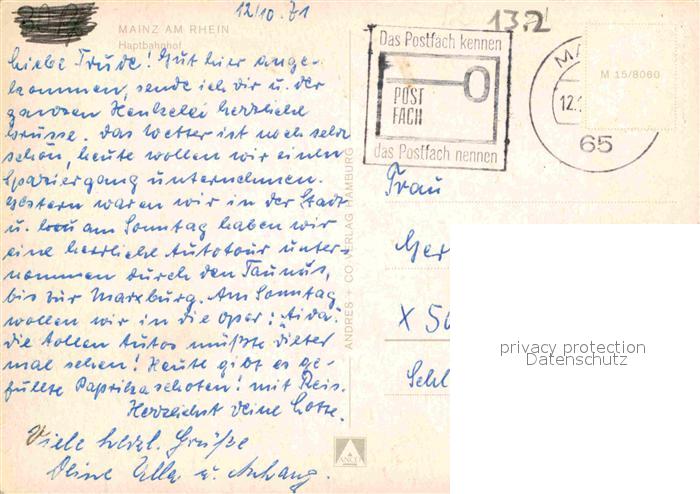 12/10.71
13.2
MAINZ AM RHEIN
Haptbahnhof
Liebe Trude! Gut hier ange-
kommen, sende ich dir u. der
ganzen Henkelei herzliche
Grüsse. Das Wetter ist noch sehr
schön, heute wollen wir einen
Spaziergang unternehmen.
Gestern waren wir in der Stadt
u. am Sonntag haben wir
eine herrliche Autotour unter-
nommen durch den Taunus,
bis zur Marxburg. Am Sonntag
wollen wir in die Oper: Aida.
die tollen Autos müßte Dieter
mal sehen! Heute gibt es ge-
füllte Paprikaschoten! mit Reis.
Herzlichst deine Lotte.
Viele herzl. Grüße
Deine Ella u. Anhang.
ANDRES + CO VERLAG HAMBURG
ANCO
Das Postfach kennen
POST
FACH
das Postfach nennen
MA
12.1
65
M 15/8060
Frau
Ger
X 50
Schl
privacy protection
Datenschutz